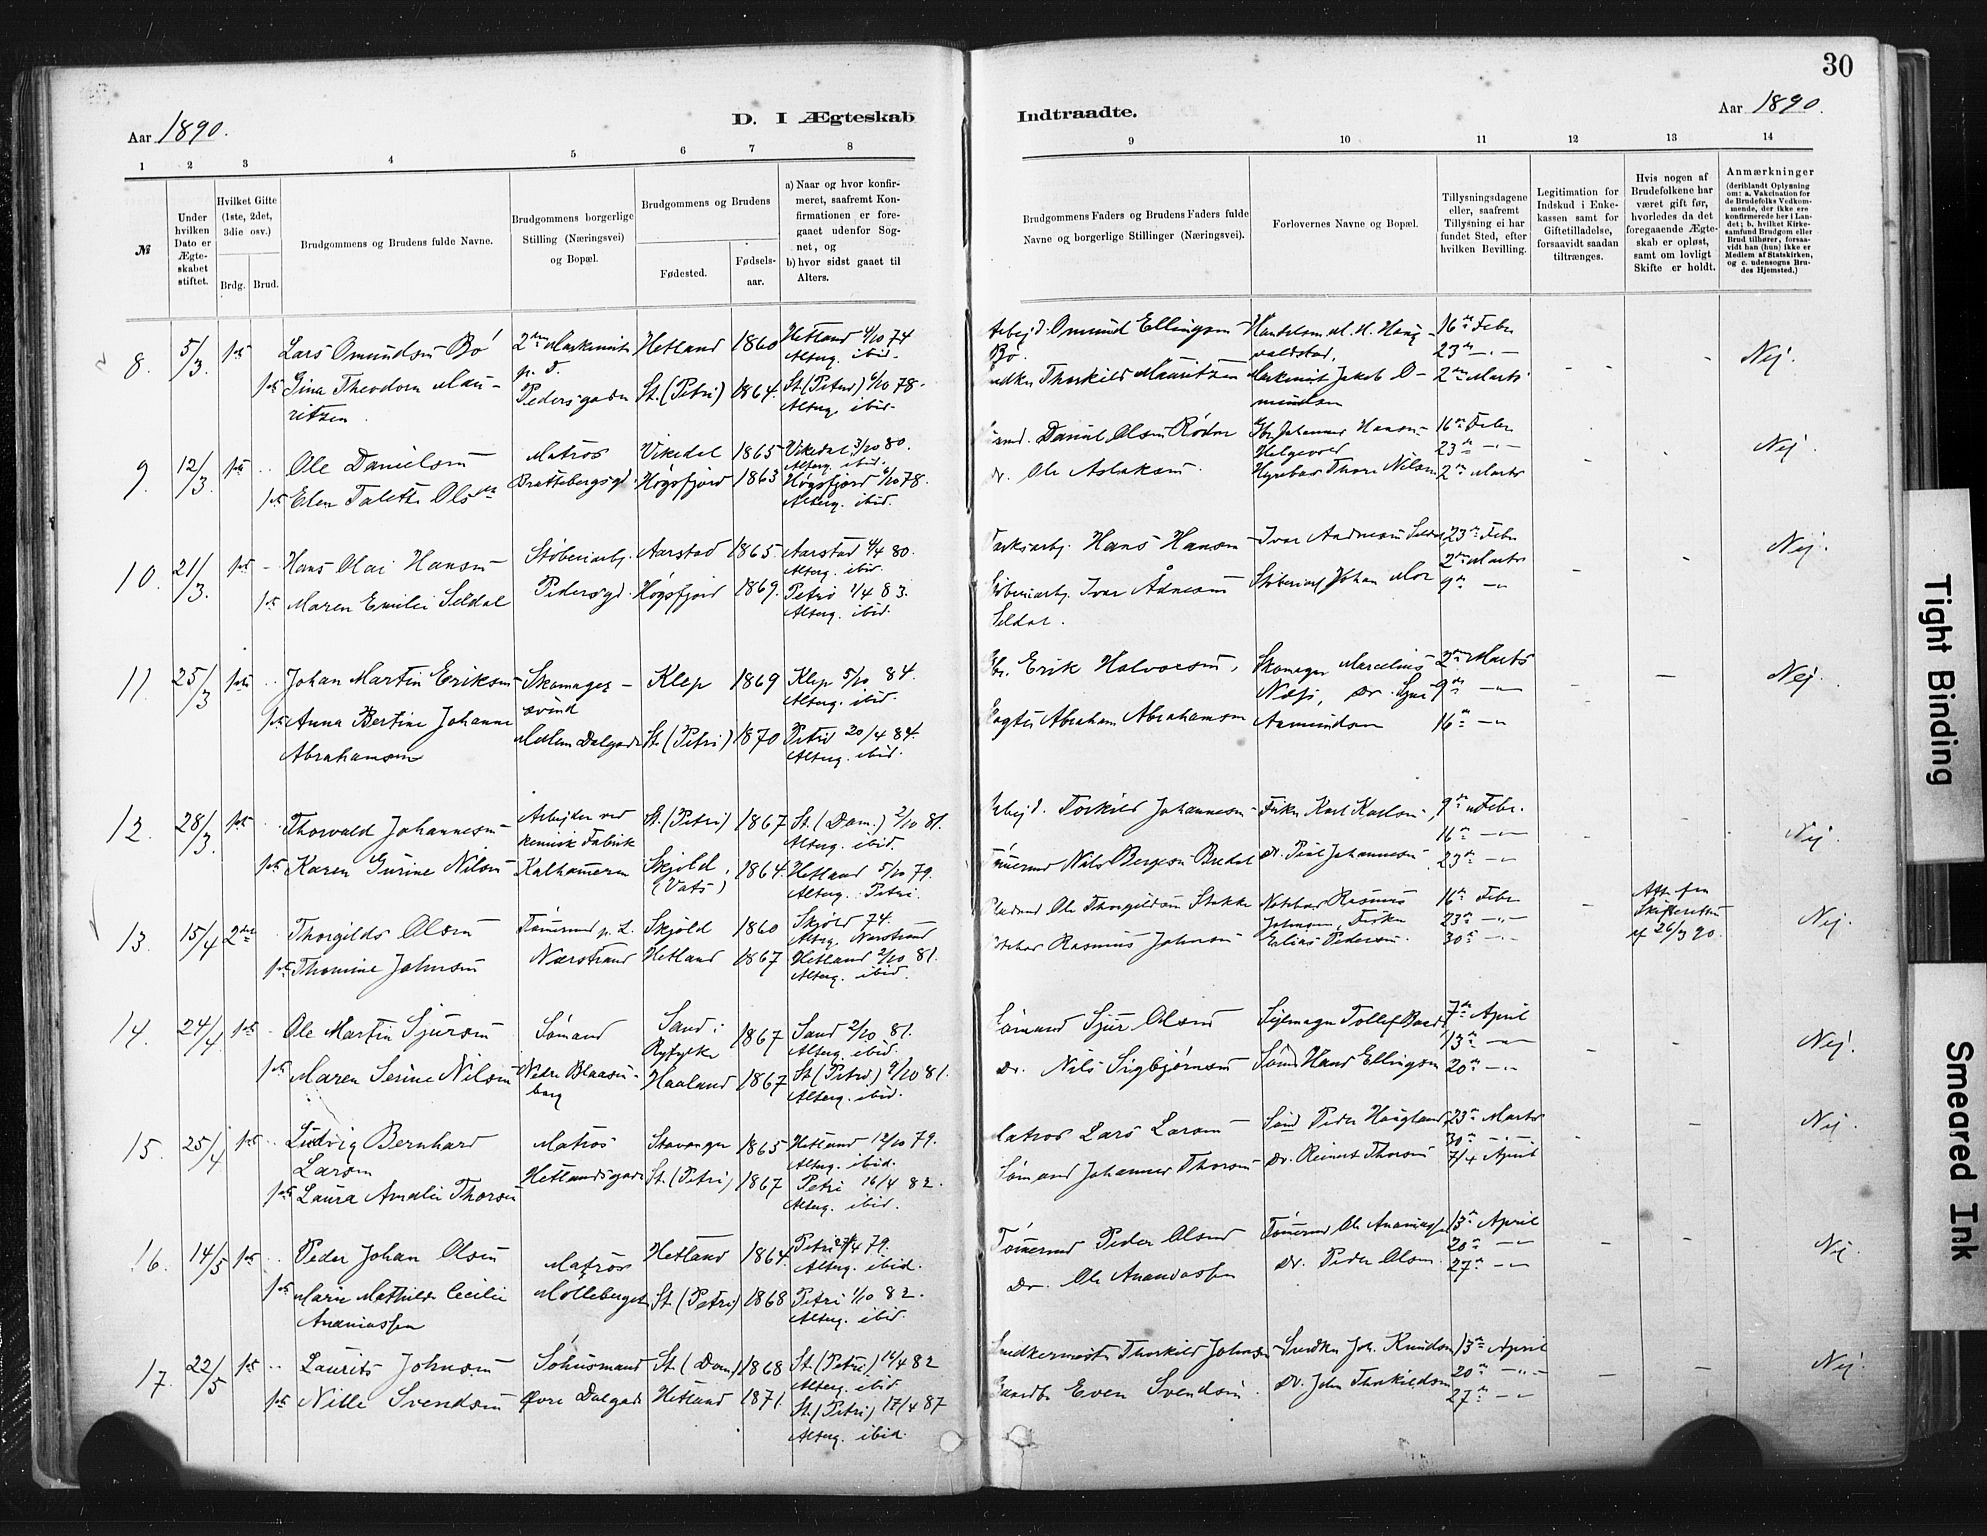 30
Aar 1890.
D. I Ægteskab
Indtraadte.
Aar 1890.
1 2 3 4 5 6 7 8 9 10 11 12 13 14
№
Under hvilken Dato er Ægteskabet stiftet.
Hvilket Gifte (1ste, 2det, 3die osv.)
Brdg. Brud.
Brudgommens og Brudens fulde Navne.
Brudgommens borgerlige Stilling (Næringsvei) og Bopæl.
Brudgommens og Brudens
Fødested.
Fødselsaar.
a) Naar og hvor konfirmeret, saafremt Konfirmationen er foregaaet udenfor Sognet, og
b) hvor sidst gaaet til Alters.
Brudgommens Faders og Brudens Faders fulde Navne og borgerlige Stillinger (Næringsvei).
Forlovernes Navne og Bopæl.
Tillysningsdagene eller, saafremt Tillysning ei har fundet Sted, efter hvilken Bevilling.
Legitimation for Indskud i Enkekassen samt for Giftetilladelse, forsaavidt saadan tiltrænges.
Hvis nogen af Brudefolkene har været gift før, hvorledes da det foregaaende Ægteskab er opløst, samt om lovligt Skifte er holdt.
Anmærkninger
(deriblandt Oplysning om: a. Vakcination for de Brudefolks Vedkommende, der ikke ere konfirmerede her i Landet; b. hvilket Kirkesamfund Brudgom eller Brud tilhører, forsaavidt han (hun) ikke er Medlem af Statskirken, og c. udensogns Brudes Hjemsted.)
8. 5/3. 1ste Lars Omundsen Bø 2den Maskinist Hetland 1860 Hetland 4/10 74
Alterg. ibid.
Omund Ellingsen Bø. 16de Febr
23de -"-
1ste Gina Theodora Mauritzen Pedersgaden St. (Petri) 1864. St. (Petri) 6/10 78.
Alterg. ibid.
Thorkild Mauritzen Maskinist Jakob Omundsen 2den Marts
Nej.
9. 12/3. 1ste Ole Danielsen Matros Vikedal 1865 Vikedal 3/10 80.
Alterg. ibid.
Daniel Olsen 16de Febr
23de -"-
1ste Elen Talette Olsen Brattebergsgd. Høgsfjord 1863 Høgsfjord 6/10 78.
Alterg. ibid.
Ole Aslaksen. Thore Nilsen 2den Marts
Nej.
10. 21/3. 1ste Hans Olai Hansen Støberiarbj. Aarstad 1865. Aarstad 4/4 80.
Alterg. ibid.
Hans Hansen 23de Febr
2den Marts
1ste Maren Emilie Seldal Pedersgd. Høgsfjord 1869. Petri 1/4 83.
Alterg. ibid.
Ivar Ådnesen Seldal. 9de -"-
Nej.
11. 25/3 1ste Johan Martin Eriksen Skomager- Klep 1869 Klep 5/10 84.
svend Alterg. ibid.
Erik Halvorsen, Skomager Marcelius 2den Marts
9de -"-
1ste Anna Bertine Johanne Abrahamsen Mellem Dalgade St. (Petri) 1870 Petri 20/4 84.
Alterg. ibid.
Abraham Abrahamsen Aamundsen 16de -"-
Nej.
12. 28/3. 1ste Thorvald Johannesen Arbejder ved kemisk Fabrik St. (Petri) 1867 St. (Dom.) 2/10 81.
Alterg. ibid.
Torkild Johannesen Karl Karlsen 9de Febr.
16de -"-
1ste Karen Gurine Nilsen Kalhammeren Skjold, (Vats) 1864. Hetland 5/10 79.
Alterg. Petri.
Nils Bergesen Bredal Dr. Johannesen 23de -"-
Nej.
13. 15/4 2det Thorgilds Olsen Skjold 1860 Skjold 74.
Alterg. Nerstrand
Ole Thorgildsen Stakke Rasmus Johnsen, 16de Febr
23de -"-
Att. fra Skifteretten af 26/3 90.
1ste Thomine Johnsen Nærstrand Hetland 1867 Hetland 2/10 81.
Alterg. ibid.
Rasmus Johnsen Elias Pedersen. 30de -"-
Nej.
14. 24/4. 1ste Ole Martin Sjursen Sømand Sand i Ryfylke 1867 Sand 2/10 81.
Alterg. ibid.
Sømand Sjur Olsen Sejlmager Tollef 7de April
13de -"-
1ste Maren Serine Nilsen Nedre Blaasenborg Haaland 1867 St. (Petri) 9/10 81.
Alterg. ibid.
Dr. Nils Sigbjørnsen Hans Ellingsen 20de -"-
Nej.
15. 25/4 1ste Ludvig Bernhard Larsen Matros Stavanger 1865 Hetland 12/10 79.
Alterg. ibid.
Matros Lars Larsen Peder Haugland 23de Marts
30de -"-
1ste Laura Amalie Thorsen Hetlandsgade St. (Petri) 1867 Petri 16/4 82.
Alterg. ibid.
Sømand Johannes Thorsen Dr. Reinert Thorsen 7/4 April
Nej.
16. 14/5 1ste Peder Johan Olsen Matros Hetland 1864. Petri 27/4 79.
Alterg. ibid.
Tømmermd Peder Olsen Tømmermd Ole 13de April
20de -"-
1ste Marie Mathilde Cecilie Ananiassen Mølleberget St. (Petri) 1868 Petri 1/10 82.
Alterg. ibid.
Dr. Ole Ananiassen Dr. Peder Olsen 27de -"-
Nej.
17. 22/5 1ste Laurits Johnsen St. (Dom) 1868 St. (Petri) 16/4 82
Alterg. ibid
Snedkermester Thorkild Johnsen Snedker Joh. Knudsen 13de April
20de -"-
1ste Nille Svendsen Øvre Dalgade Hetland 1871. St. (Petri) 17/4 87
Alterg. ibid.
Even Svendsen Dr. John Thorkildsen 27de -"-
Nej.
Tight Binding
Smeared Ink